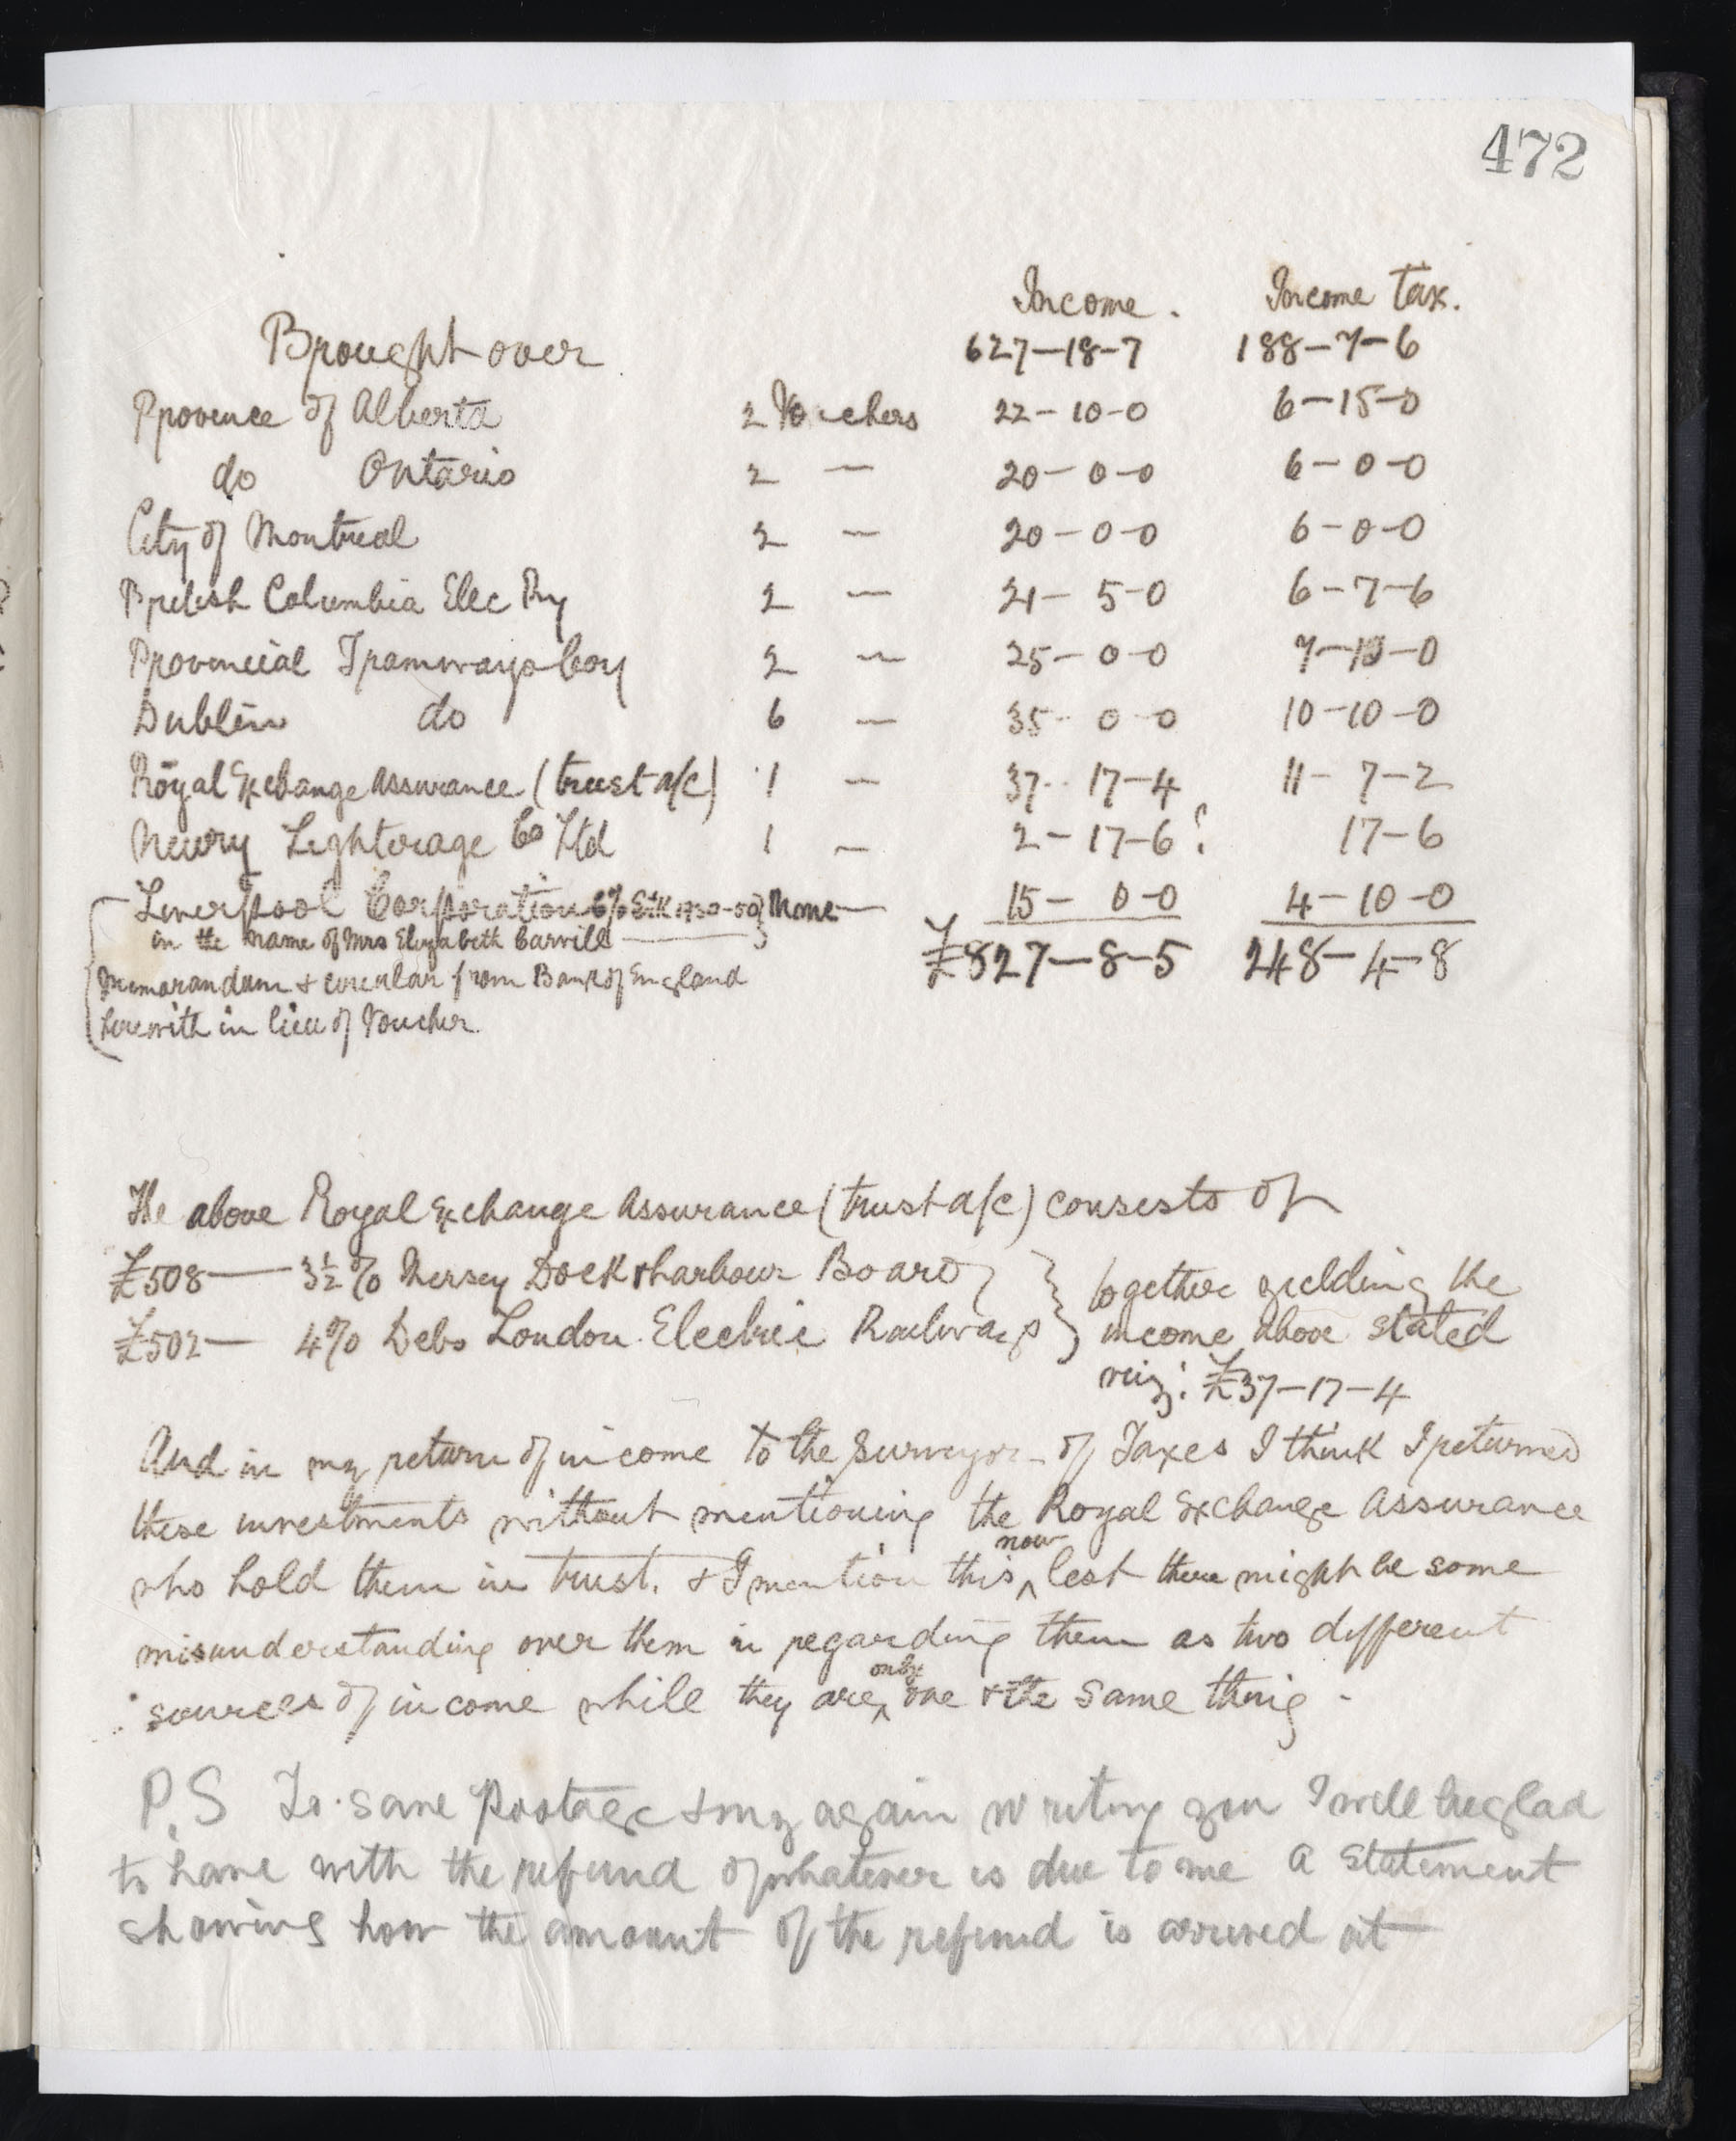 472
Income. Income Tax.
Brought over 627-18-7 188-7-6
Province of Alberta 2 Vouchers 22-10-0 6-15-0
do Ontario 2 — 20-0-0 6-0-0
City of Montreal 2 — 20-0-0 6-0-0
British Columbia Elec Ry 2 — 21-5-0 6-7-6
Provincial Tramways Coy 2 — 25-0-0 7-10-0
Dublin do 6 — 35-0-0 10-10-0
Royal Exchange Assurance (trust a/c) 1 — 37-17-4 11-7-2
Newry Lighterage Co Ltd 1 — 2-17-6? 17-6
Liverpool Corporation 6% Stk 1930-50 } None — 15-0-0 4-10-0
in the name of Mrs Elizabeth Carvill £827-8-5 248-4-8
Memorandum & circular from Bank of England
herewith in lieu of Voucher.
The above Royal Exchange Assurance (trust a/c) consists of
£508 — 3½% Mersey Dock & harbour Board } together yielding the
£502 — 4% Debs London Electric Railways } income above stated
viz: £37-17-4
And in my return of income to the Surveyor of Taxes I think I returned
these investments without mentioning the Royal Exchange Assurance
now
who hold them in trust. & I mention this ^ lest there might be some
misunderstanding over them in regarding them as two different
only
sources of income while they are ^ one & the same thing -
P.S To save Postage & my again writing you I will be glad
to have with the refund of whatever is due to me a statement
showing how the amount of the refund is arrived at